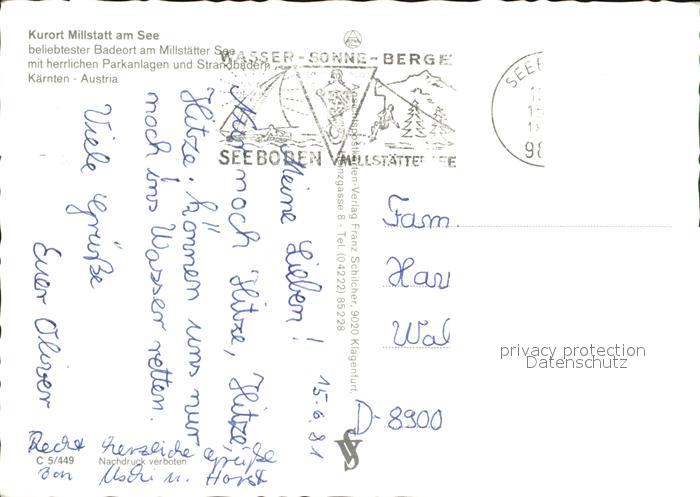 Kurort Millstatt am See
beliebtester Badeort am Millstätter See
mit herrlichen Parkanlagen und Strandbädern
Kärnten - Austria
WASSER - SONNE - BERGE
SEEBODEN MILLSTÄTTER SEE
SEEB
98
15.6.81
Meine Lieben!
Nur noch Hitze, Hitze,
Hitze! Können uns nur
noch ins Wasser retten.
Viele Grüße
Euer Oliver
Recht herzliche Grüße
von Uschi u. Horst
C 5/449 Nachdruck verboten
Verlag Franz Schilcher, 9020 Klagenfurt,
gasse 8 - Tel. (04222) 85228
Fam.
Har
Wal
D-8900
privacy protection
Datenschutz